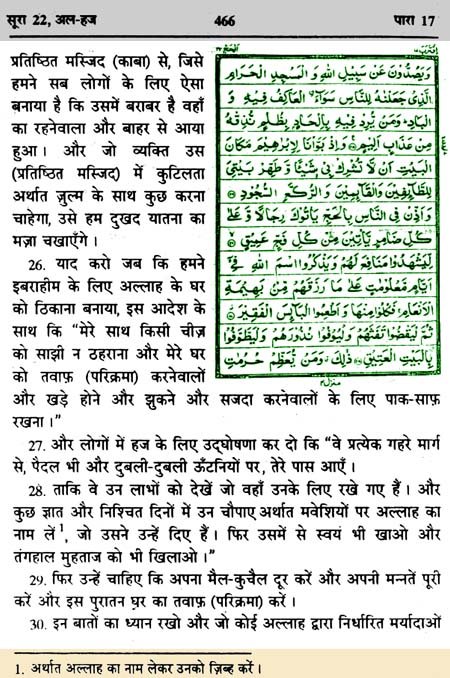 सूरा 22, अल-हज 466 पारा 17
प्रतिष्ठित मस्जिद (काबा) से, जिसे
हमने सब लोगों के लिए ऐसा
बनाया है कि उसमें बराबर है वहाँ
का रहनेवाला और बाहर से आया
हुआ। और जो व्यक्ति उस
(प्रतिष्ठित मस्जिद) में कुटिलता
अर्थात ज़ुल्म के साथ कुछ करना
चाहेगा, उसे हम दुखद यातना का
मज़ा चखाएँगे।
26. याद करो जब कि हमने
इबराहीम के लिए अल्लाह के घर
को ठिकाना बनाया, इस आदेश के
साथ कि “मेरे साथ किसी चीज़
को साझी न ठहराना और मेरे घर
को तवाफ़ (परिक्रमा) करनेवालों
और खड़े होने और झुकने और सजदा करनेवालों के लिए पाक-साफ़
रखना।”
وَيَصُدُّونَ عَنْ سَبِيلِ اللّٰهِ وَالْمَسْجِدِ الْحَرَامِ
الَّذِي جَعَلْنٰهُ لِلنَّاسِ سَوَآءَۨ الْعَاكِفُ فِيهِ وَ
الْبَادِ وَمَنْ يُرِدْ فِيهِ بِإِلْحَادٍ بِظُلْمٍ نُذِقْهُ
مِنْ عَذَابٍ أَلِيمٍ وَإِذْ بَوَّأْنَا لِإِبْرٰهِيمَ مَكَانَ
الْبَيْتِ أَنْ لَا تُشْرِكْ بِي شَيْئًا وَطَهِّرْ بَيْتِيَ
لِلطَّآئِفِينَ وَالْقَآئِمِينَ وَالرُّكَّعِ السُّجُودِ
وَأَذِّنْ فِي النَّاسِ بِالْحَجِّ يَأْتُوكَ رِجَالًا وَّعَلٰى
كُلِّ ضَامِرٍ يَأْتِينَ مِنْ كُلِّ فَجٍّ عَمِيقٍ
لِيَشْهَدُوا مَنَافِعَ لَهُمْ وَيَذْكُرُوا اسْمَ اللّٰهِ فِيٓ
أَيَّامٍ مَعْلُومٰتٍ عَلٰى مَا رَزَقَهُمْ مِنْ بَهِيمَةِ
الْأَنْعَامِ فَكُلُوا مِنْهَا وَأَطْعِمُوا الْبَآئِسَ الْفَقِيرَ
ثُمَّ لْيَقْضُوا تَفَثَهُمْ وَلْيُوفُوا نُذُورَهُمْ وَلْيَطَّوَّفُوا
بِالْبَيْتِ الْعَتِيقِ ذٰلِكَ وَمَنْ يُعَظِّمْ حُرُمٰتِ
27. और लोगों में हज के लिए उद्घोषणा कर दो कि “वे प्रत्येक गहरे मार्ग
से, पैदल भी और दुबली-दुबली ऊँटनियों पर, तेरे पास आएँ।
28. ताकि वे उन लाभों को देखें जो वहाँ उनके लिए रखे गए हैं। और
कुछ ज्ञात और निश्चित दिनों में उन चौपाए अर्थात मवेशियों पर अल्लाह का
नाम लें¹, जो उसने उन्हें दिए हैं। फिर उसमें से स्वयं भी खाओ और
तंगहाल मुहताज को भी खिलाओ।”
29. फिर उन्हें चाहिए कि अपना मैल-कुचैल दूर करें और अपनी मन्नतें पूरी
करें और इस पुरातन घर का तवाफ़ (परिक्रमा) करें।
30. इन बातों का ध्यान रखो और जो कोई अल्लाह द्वारा निर्धारित मर्यादाओं
1. अर्थात अल्लाह का नाम लेकर उनको ज़िब्ह करें।